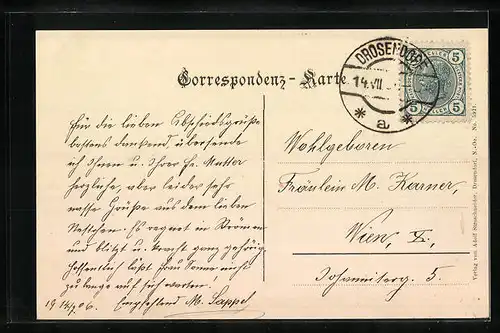 Correspondenz-Karte
DROSENDORF
14.VII
* a *
5 5
5 5
Für die lieben Abschiedsgrüße
bestens dankend, übersende
ich Ihnen u. Ihrer Fr. Mutter
herzliche, aber leider sehr
nasse Grüße aus dem lieben
Nestchen. Es regnet in Strömen
und blitzt u. kracht ganz gehörig.
Hoffentlich läßt Frau Sonne nicht
zu lange auf sich warten.
19 14/7 06. Empfehlend M. Sappel
Wohlgeboren
Fräulein M. Karner,
Wien, X.,
5.
Verlag von Adolf Drosendorf, N.-Oe. No.